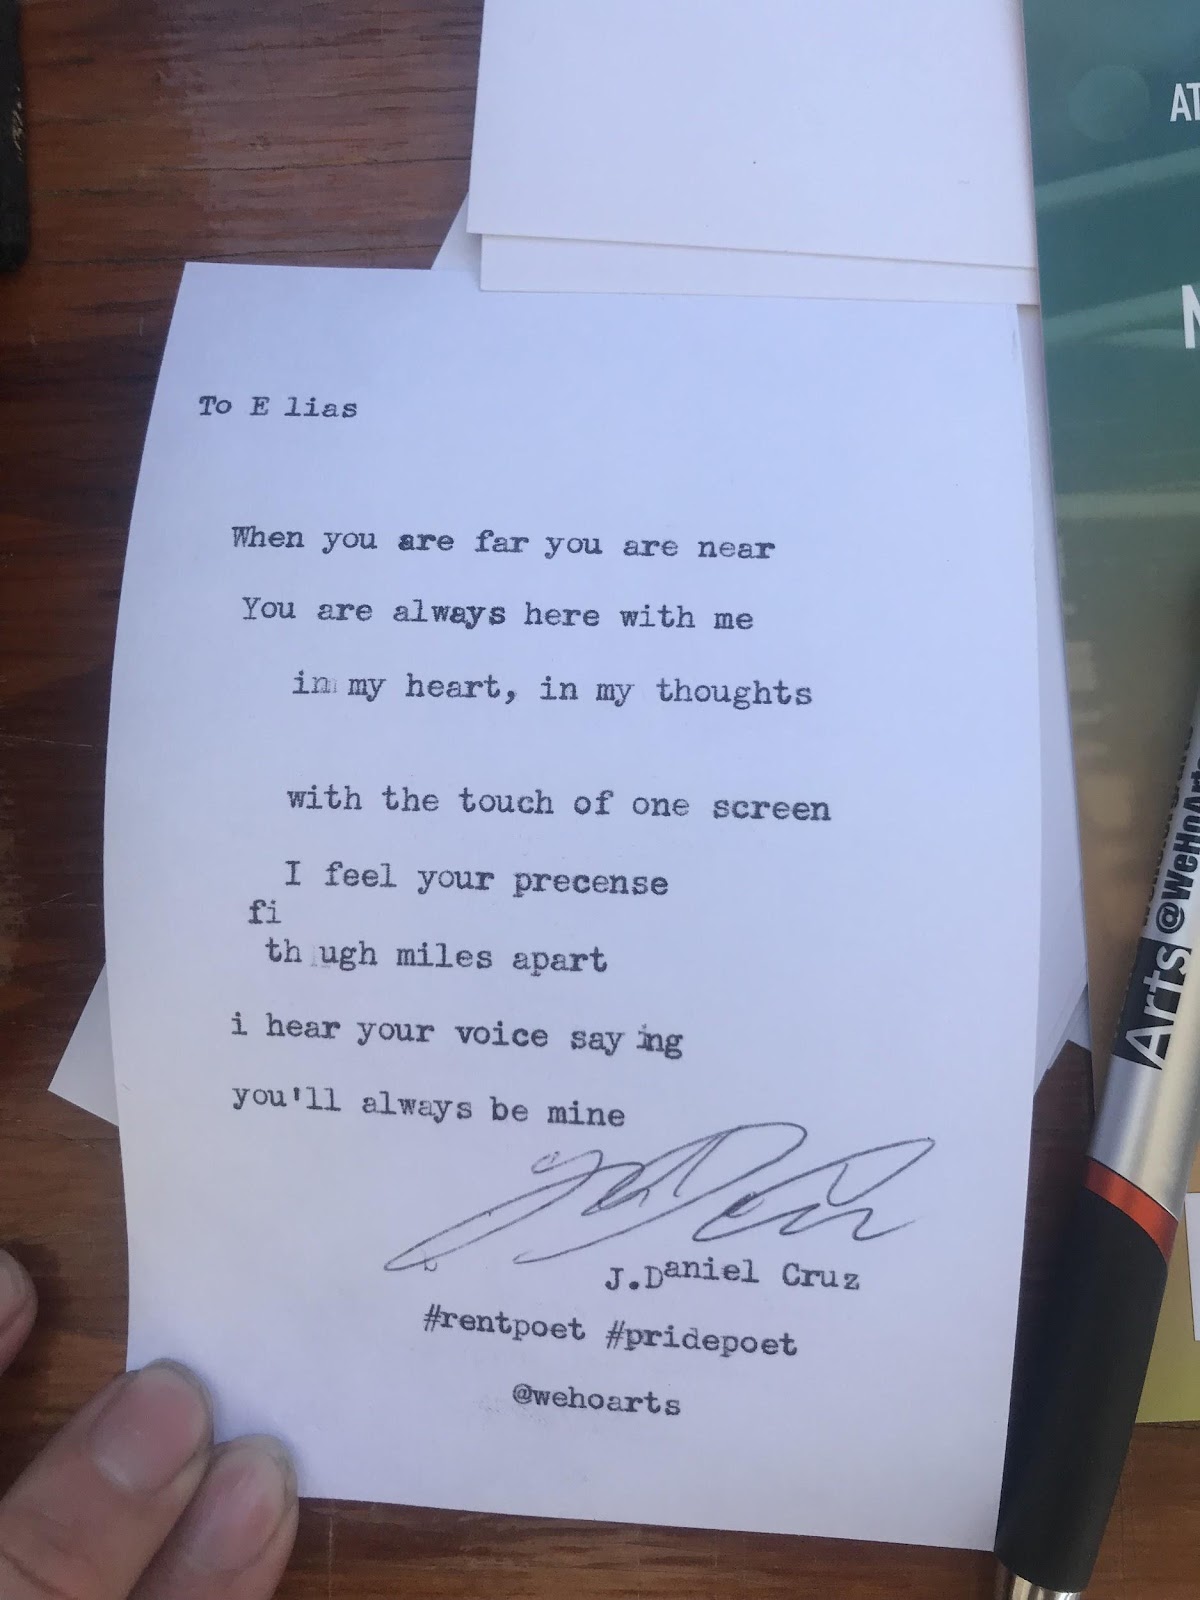 AT
N
To E lias
When you are far you are near
You are always here with me
in my heart, in my thoughts
with the touch of one screen
I feel your precense
fi
th ugh miles apart
i hear your voice say ing
you'll always be mine
J.Daniel Cruz
#rentpoet #pridepoet
@wehoarts
Arts @WeHoArts